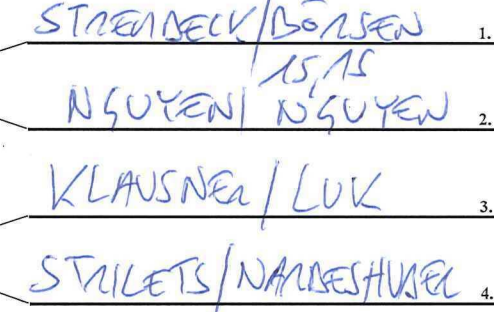 STREHBECK/BÖRSEN 1.
15,15
NGUYEN/ NGUYEN 2.
KLAUSNER/LUK 3.
STRILETS/NARBESHUBER 4.